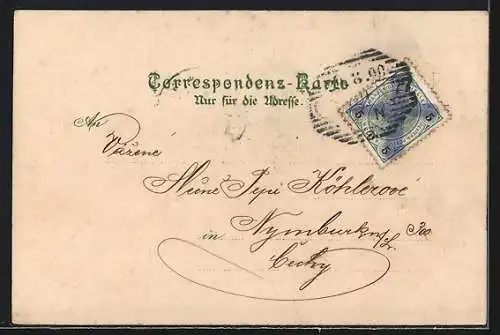 Correspondenz-Karte
Nur für die Adresse.
8.00
An
5 5
Vážené
Slečně Pepi Köhlerové
in Nymburk n/L.
Čechy